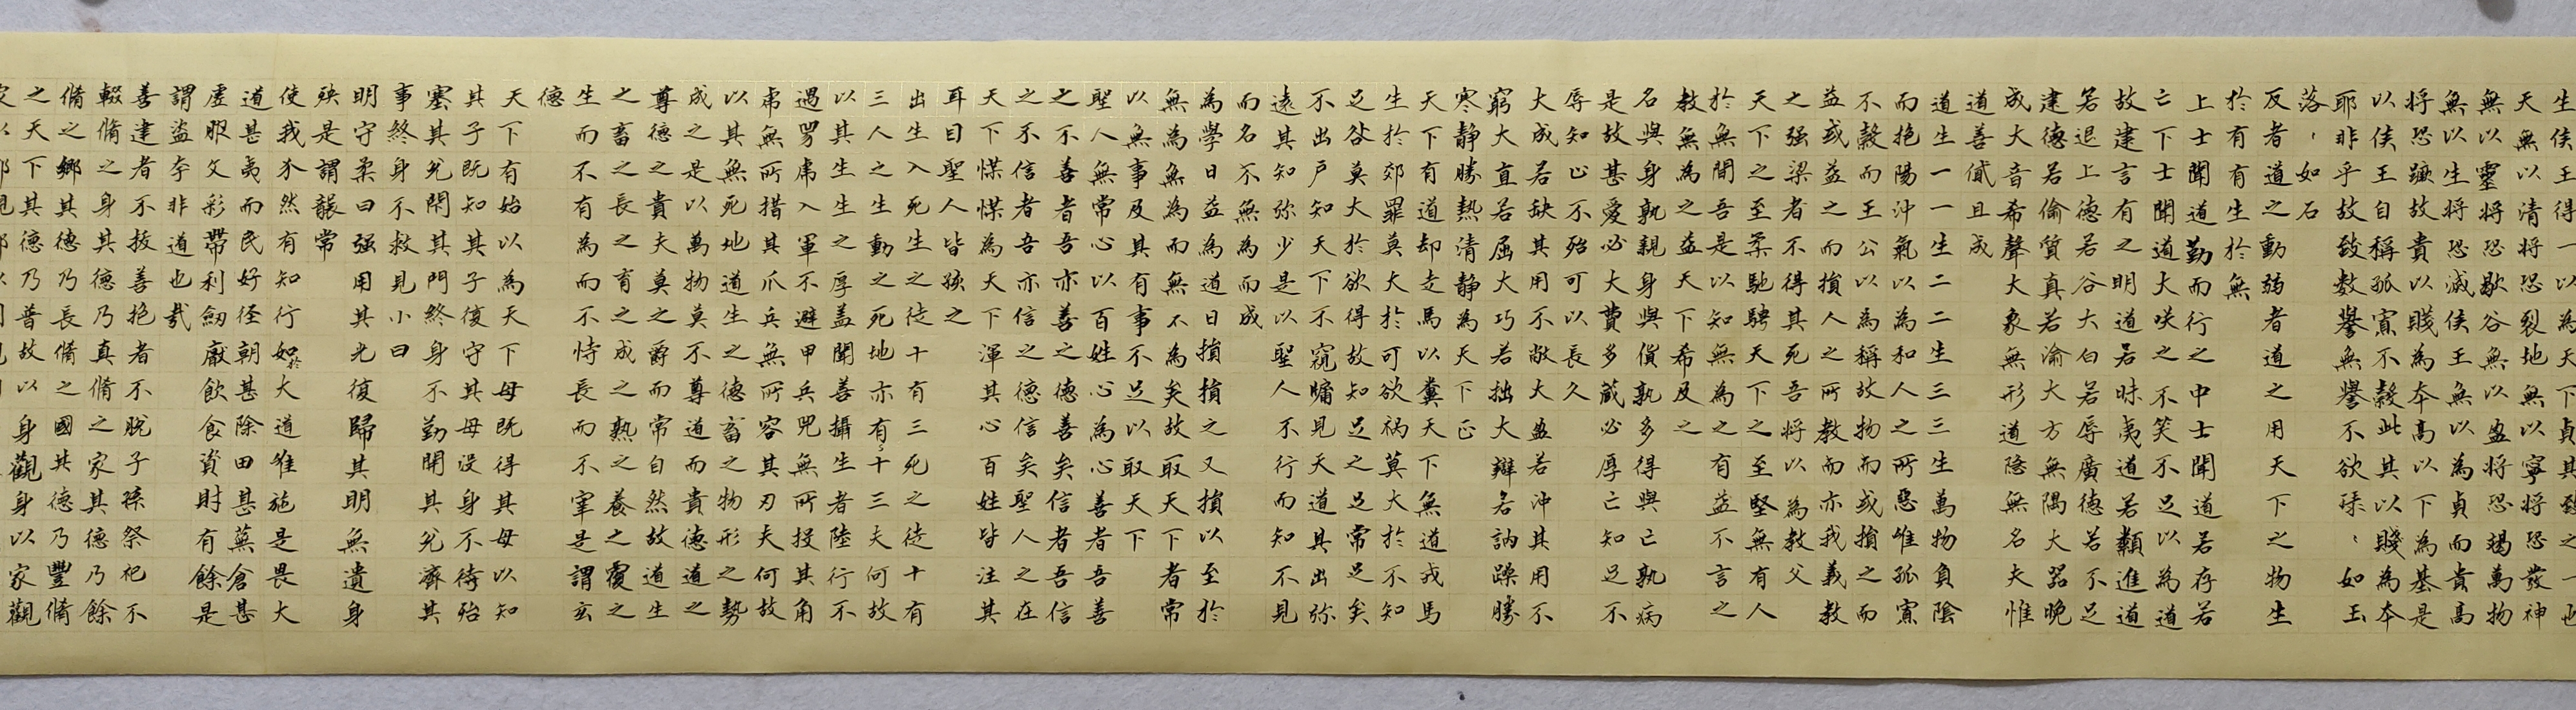 生侯王得一以為天下貞其致之一也
天無以清將恐裂地無以寧將恐發神
無以靈將恐歇谷無以盈將恐竭萬物
無以生將恐滅侯王無以為貞而貴高
將恐蹶故貴以賤為本高以下為基是
以侯王自稱孤寡不穀此其以賤為本
耶非乎故致數譽無譽不欲琭〻如玉
落〻如石
反者道之動弱者道之用天下之物生
於有有生於無
上士聞道勤而行之中士聞道若存若
亡下士聞道大咲之不笑不足以為道
故建言有之明道若昧夷道若纇進道
若退上德若谷大白若辱廣德若不足
建德若偷質真若渝大方無隅大器晚
成大音希聲大象無形道隱無名夫惟
道善貸且成
道生一一生二二生三三生萬物負陰
而抱陽沖氣以為和人之所惡唯孤寡
不穀而王公以為稱故物而或損之而
益或益之而損人之所教而亦我義教
之强梁者不得其死吾將以為教父
天下之至柔馳騁天下之至堅無有人
於無間吾是以知無為之有益不言之
教無為之益天下希及之
名與身孰親身與貨孰多得與亡孰病
是故甚愛必大費多藏必厚亡知足不
辱知止不殆可以長久
大成若缺其用不敝大盈若沖其用不
窮大直若屈大巧若拙大辯若訥躁勝
寒静勝熱清静為天下正
天下有道却走馬以糞天下無道戎馬
生於郊罪莫大於可欲禍莫大於不知
足咎莫大於欲得故知足之足常足矣
不出戶知天下不窺牖見天道其出弥
遠其知弥少是以聖人不行而知不見
而名不無為而成
為學日益為道日損損之又損以至於
無為無為而無不為矣故取天下者常
以無事及其有事不足以取天下
聖人無常心以百姓心為心善者吾善
之不善者吾亦善之德善矣信者吾信
之不信者吾亦信之德信矣聖人之在
天下惵惵為天下渾其心百姓皆注其
耳目聖人皆孩之
出生入死生之徒十有三死之徒十有
三人之生動之死地亦有十三夫何故
以其生生之厚盖聞善攝生者陸行不
遇兕虎入軍不避甲兵兕無所投其角
虎無所措其爪兵無所容其刃夫何故
以其無死地道生之德畜之物形之勢
成之是以萬物莫不尊道而貴德道之
尊德之貴夫莫之爵而常自然故道生
之畜之長之育之成之熟之養之覆之
生而不有為而不恃長而不宰是謂玄
德
天下有始以為天下母既得其母以知
其子既知其子復守其母没身不待殆
塞其兌閉其門終身不勤開其兌濟其
事終身不救見小曰
明守柔曰强用其光復歸其明無遺身
殃是謂襲常
使我介然有知行於大道唯施是畏大
道甚夷而民好径朝甚除田甚蕪倉甚
虚服文彩帶利劍厭飲食資財有餘是
謂盗夸非道也哉
善建者不拔善抱者不脱子孫祭祀不
輟脩之身其德乃真脩之家其德乃餘
脩之鄉其德乃長脩之國其德乃豐脩
之天下其德乃普故以身觀身以家觀